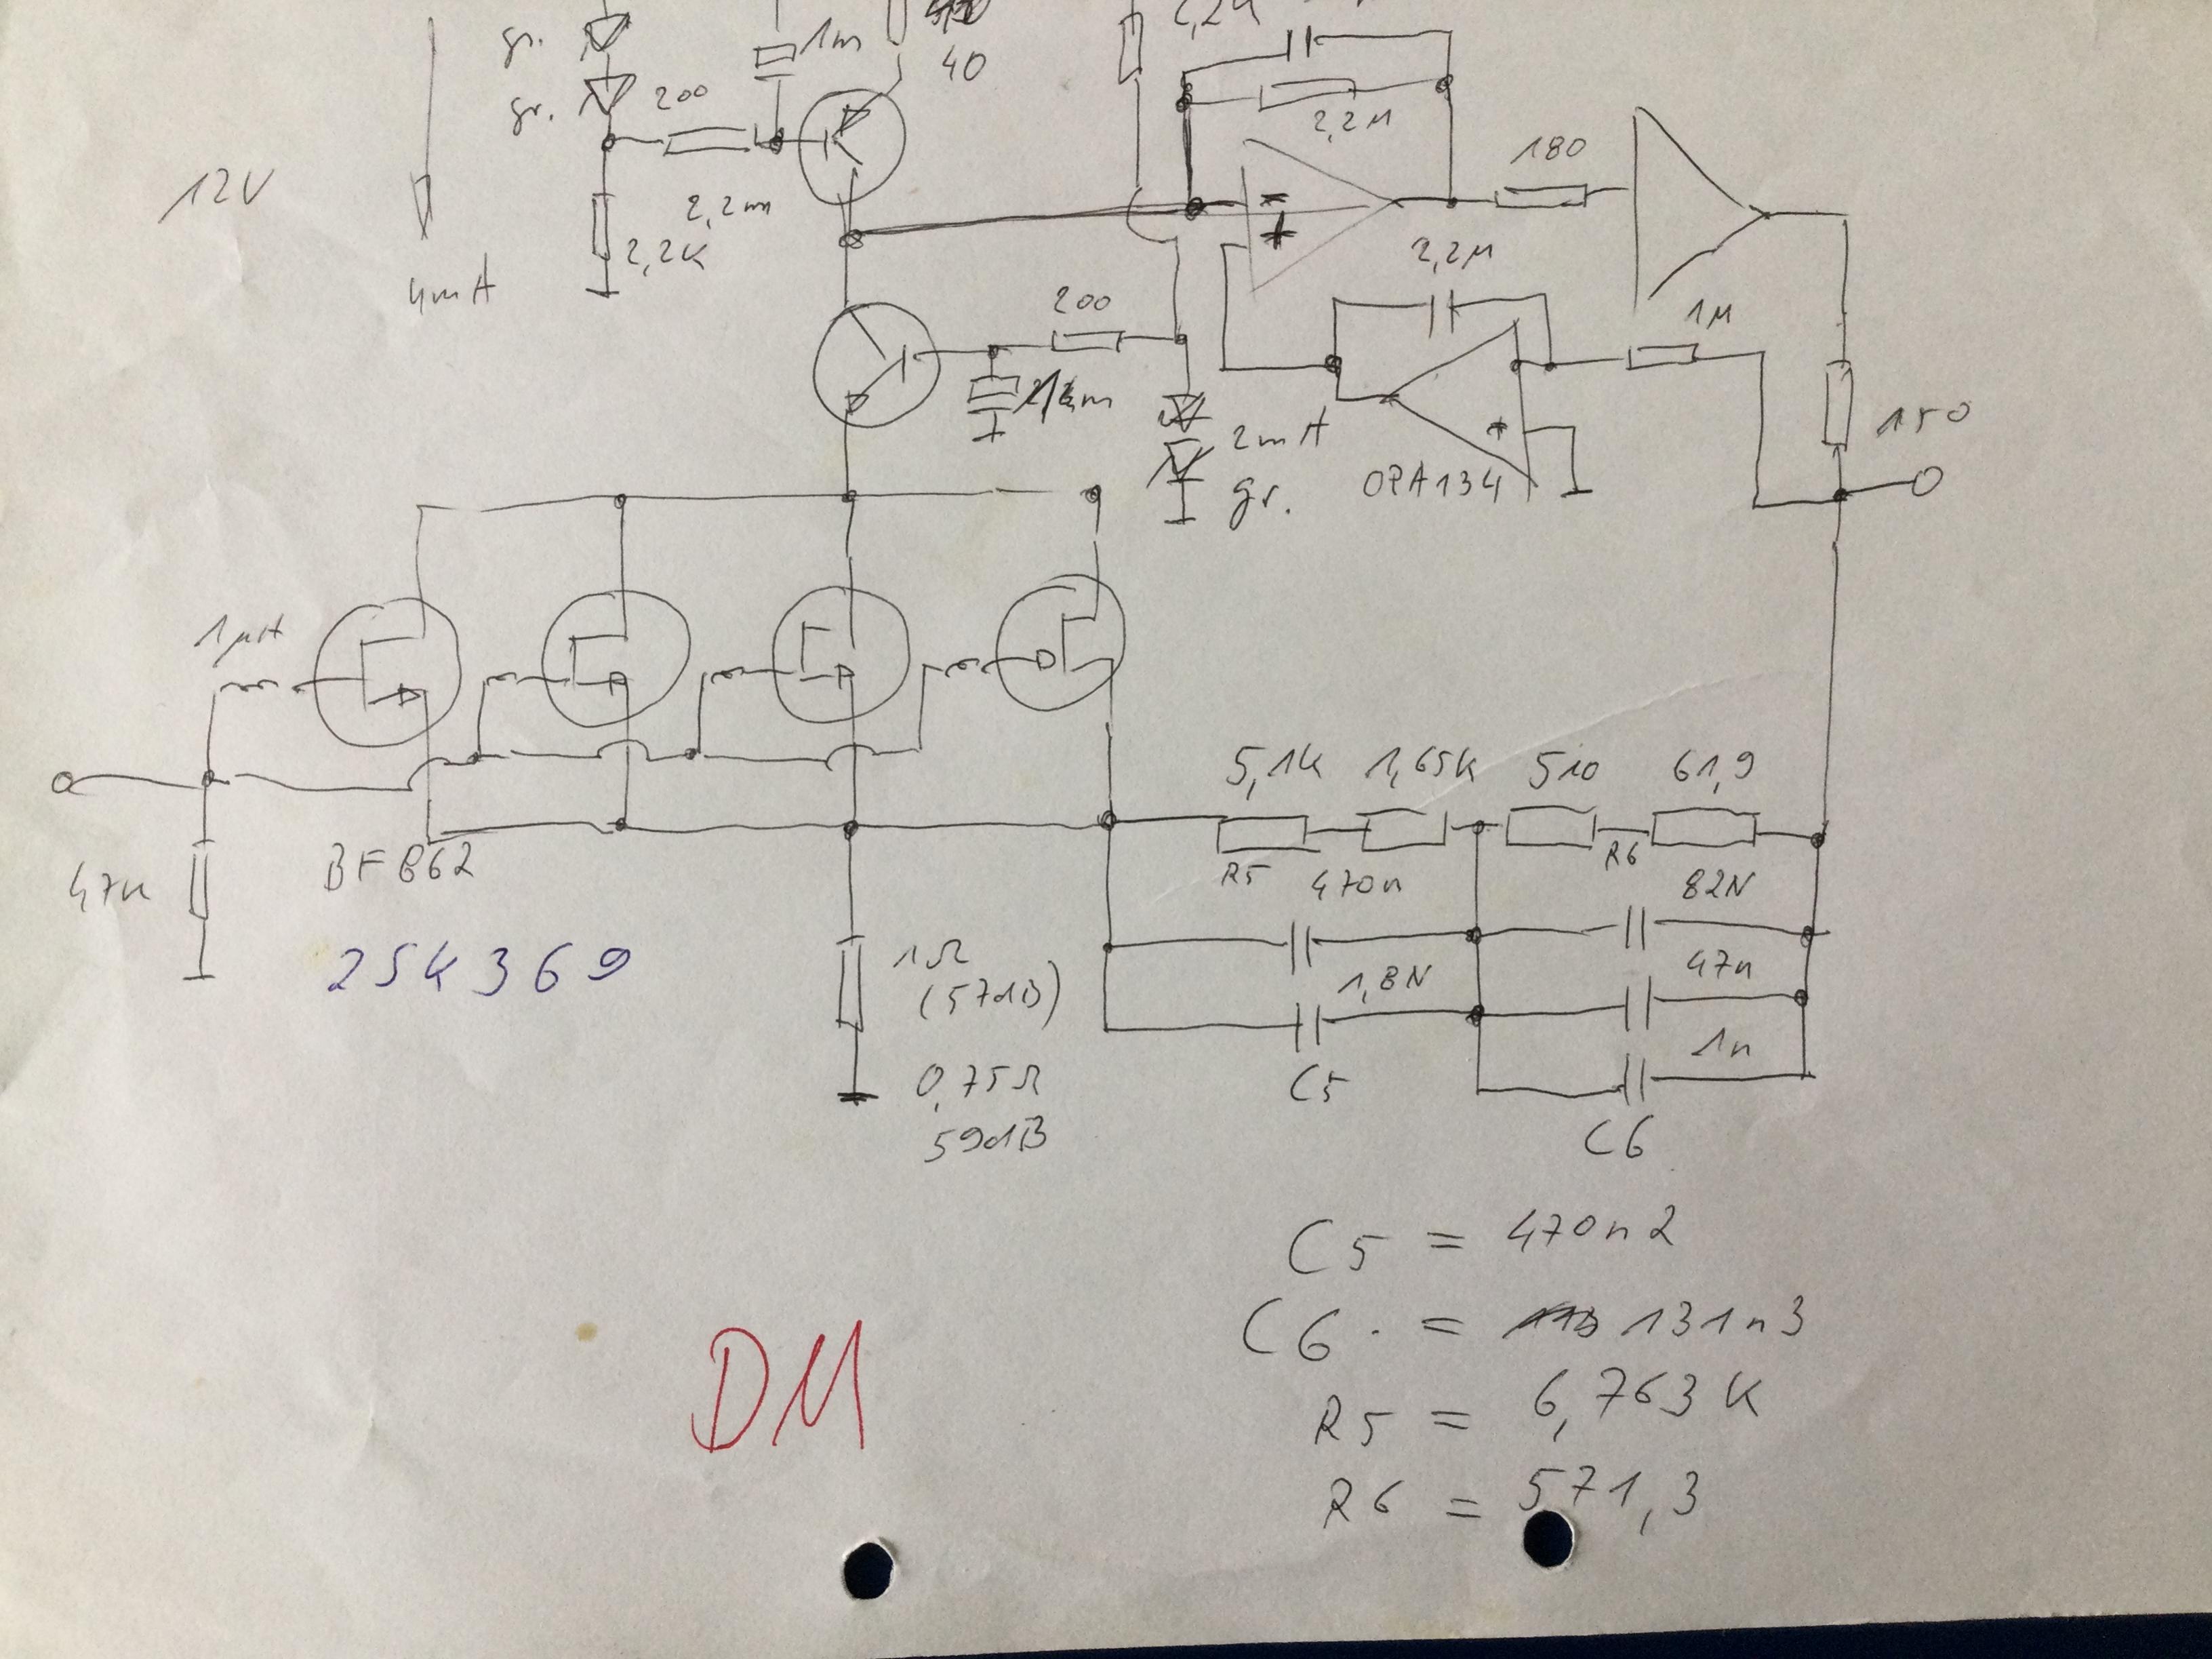 gr.
1m
40
2,2K
gr.
200
2,2M
180
12V
2,2m
2,2K
4mA
2,2M
-
+
200
1M
2mA
gr.
+
OPA134
150
1µH
5,1K 1,65K 510 61,9
R5 470n R6 82N
BF862
47K
2SK369
1Ω
(57dB)
1,8N
47n
1n
0,75Ω
59dB
C5
C6
C5 = 470n2
C6 = 131n3
R5 = 6,763K
R6 = 571,3
DM